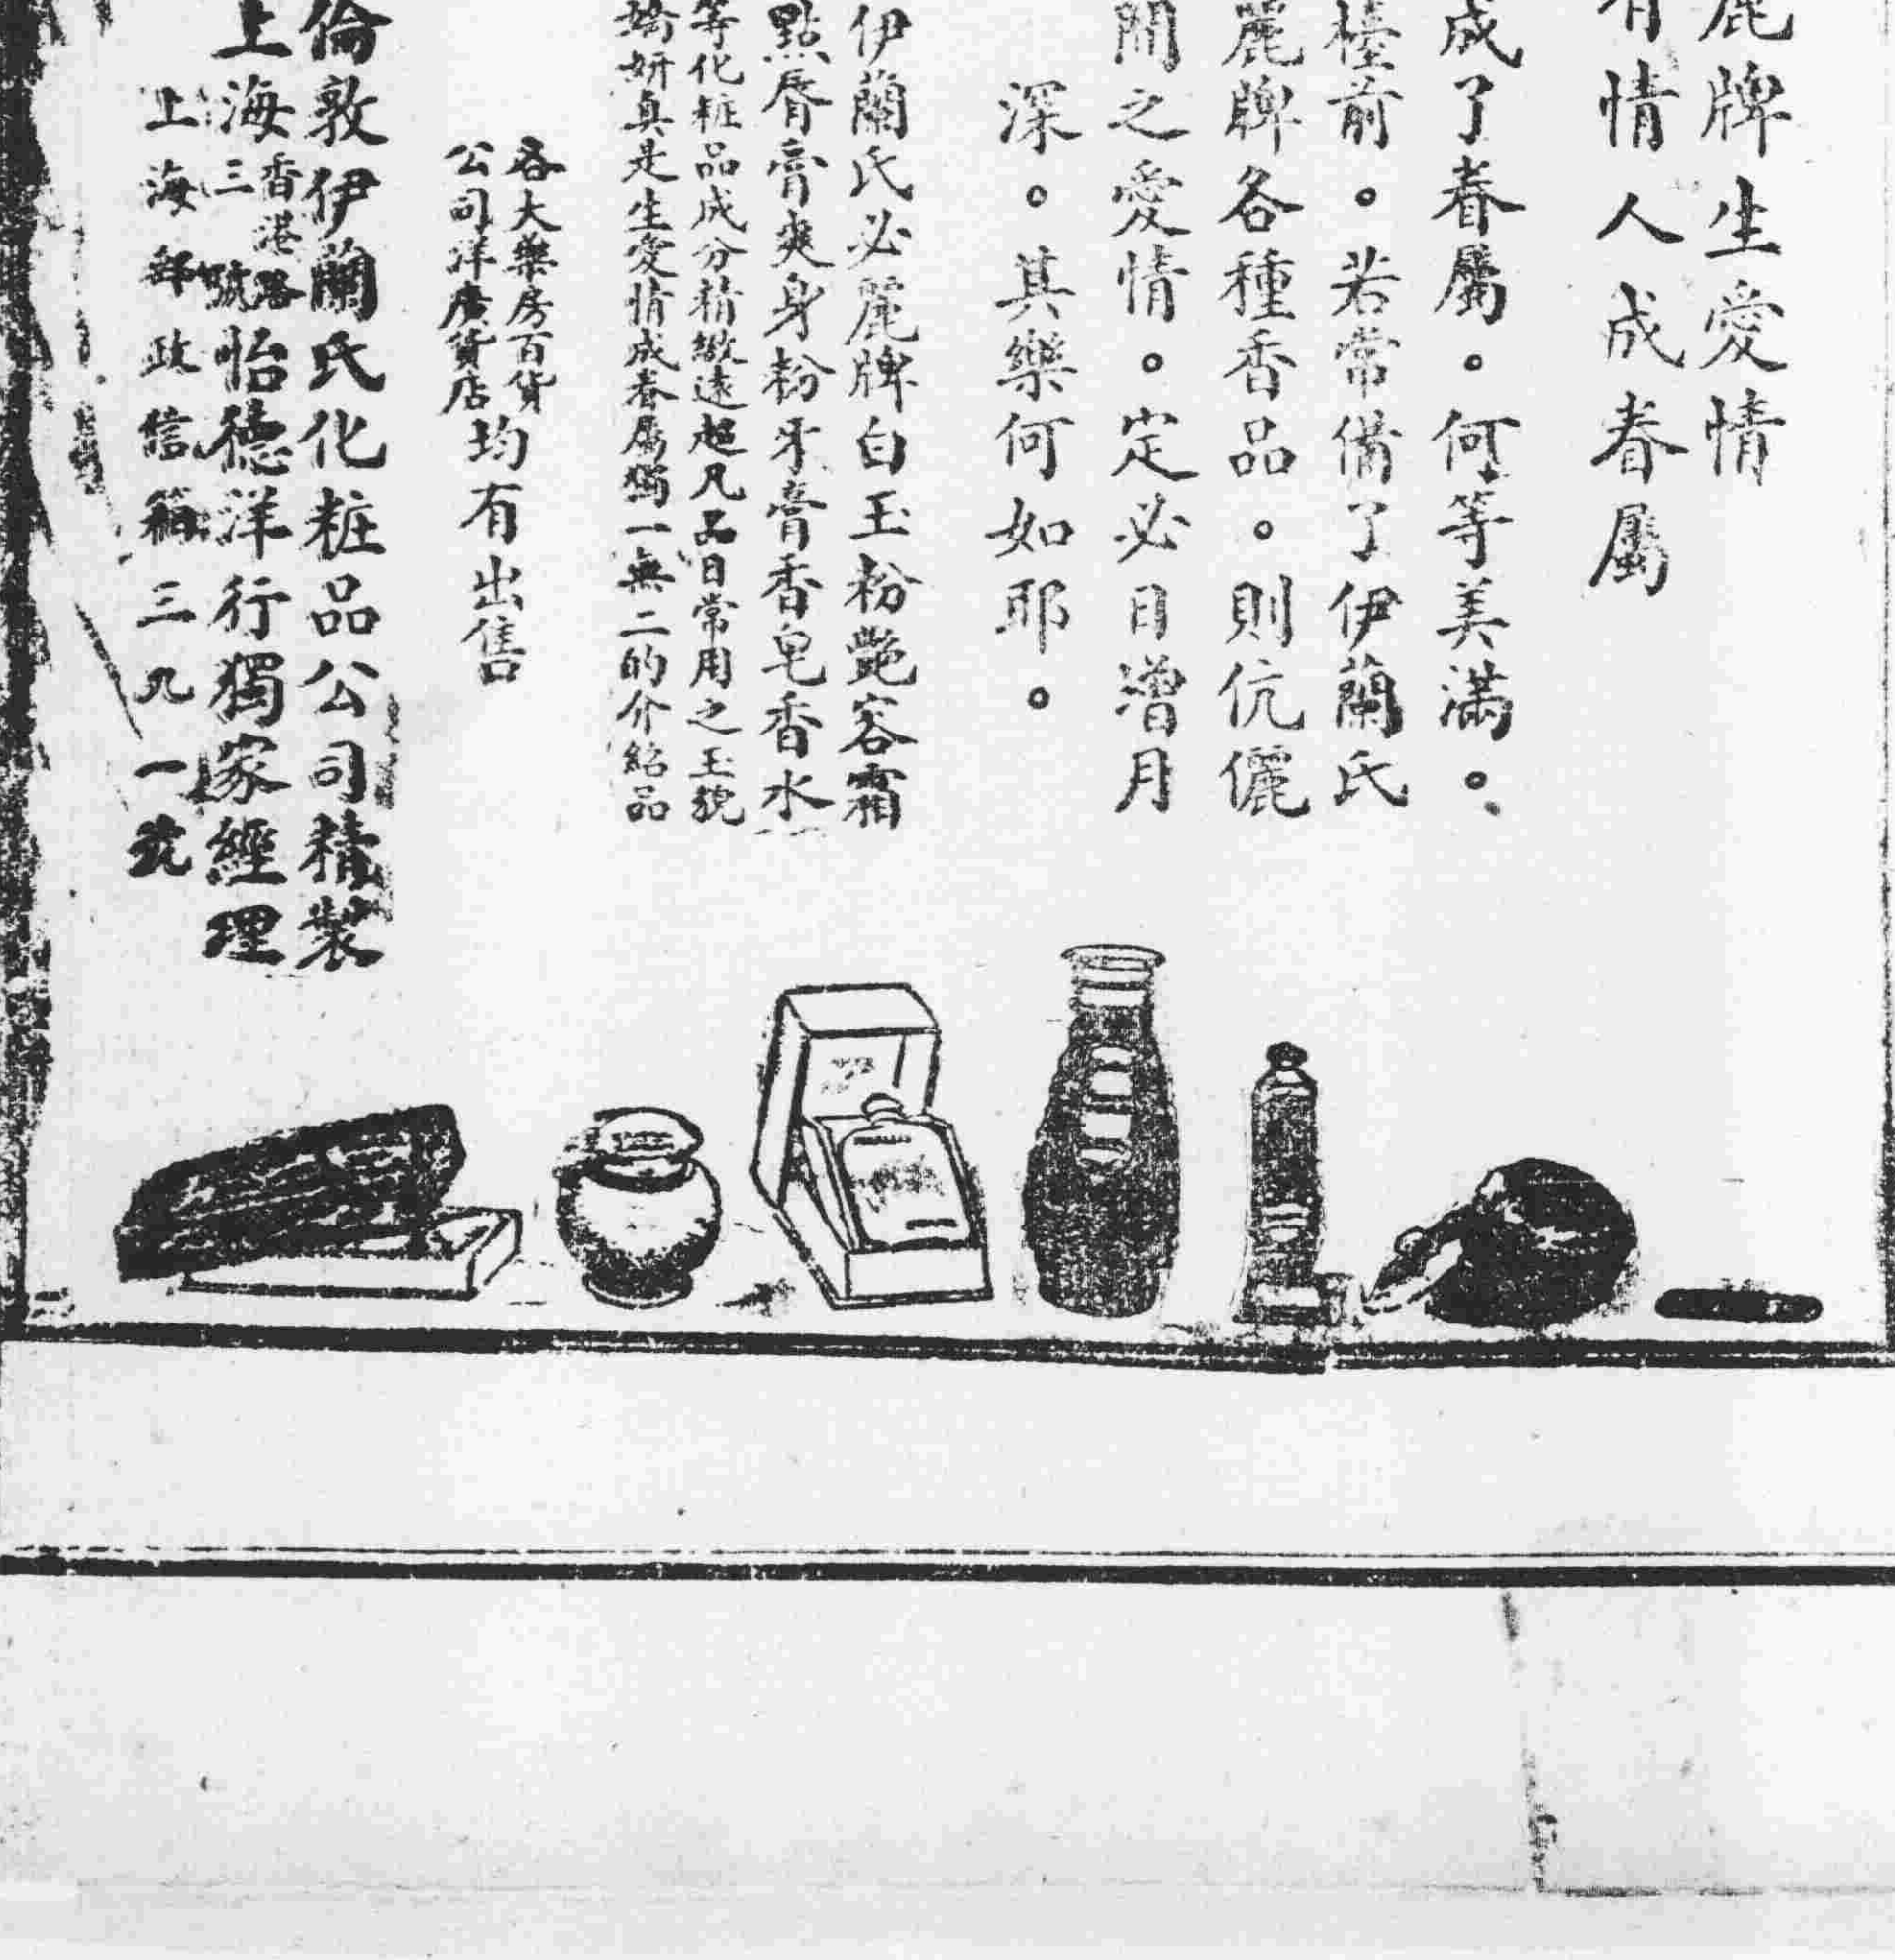 麗牌生愛情
有情人成眷屬
成了眷屬。何等美滿。
檯前。若常備了伊蘭氏
麗牌各種香品。則伉儷
間之愛情。定必日增月
深。其樂何如耶。
伊蘭氏必麗牌白玉粉艷容霜
點唇膏爽身粉牙膏香皂香水
等化粧品成分精緻遠超凡品日常用之玉貌
嬌妍真是生愛情成眷屬獨一無二的介紹品
各大藥房百貨
公司洋廣貨店均有出售
倫敦伊蘭氏化粧品公司精製
上海香港路三號怡德洋行獨家經理
上海郵政信箱三九一號